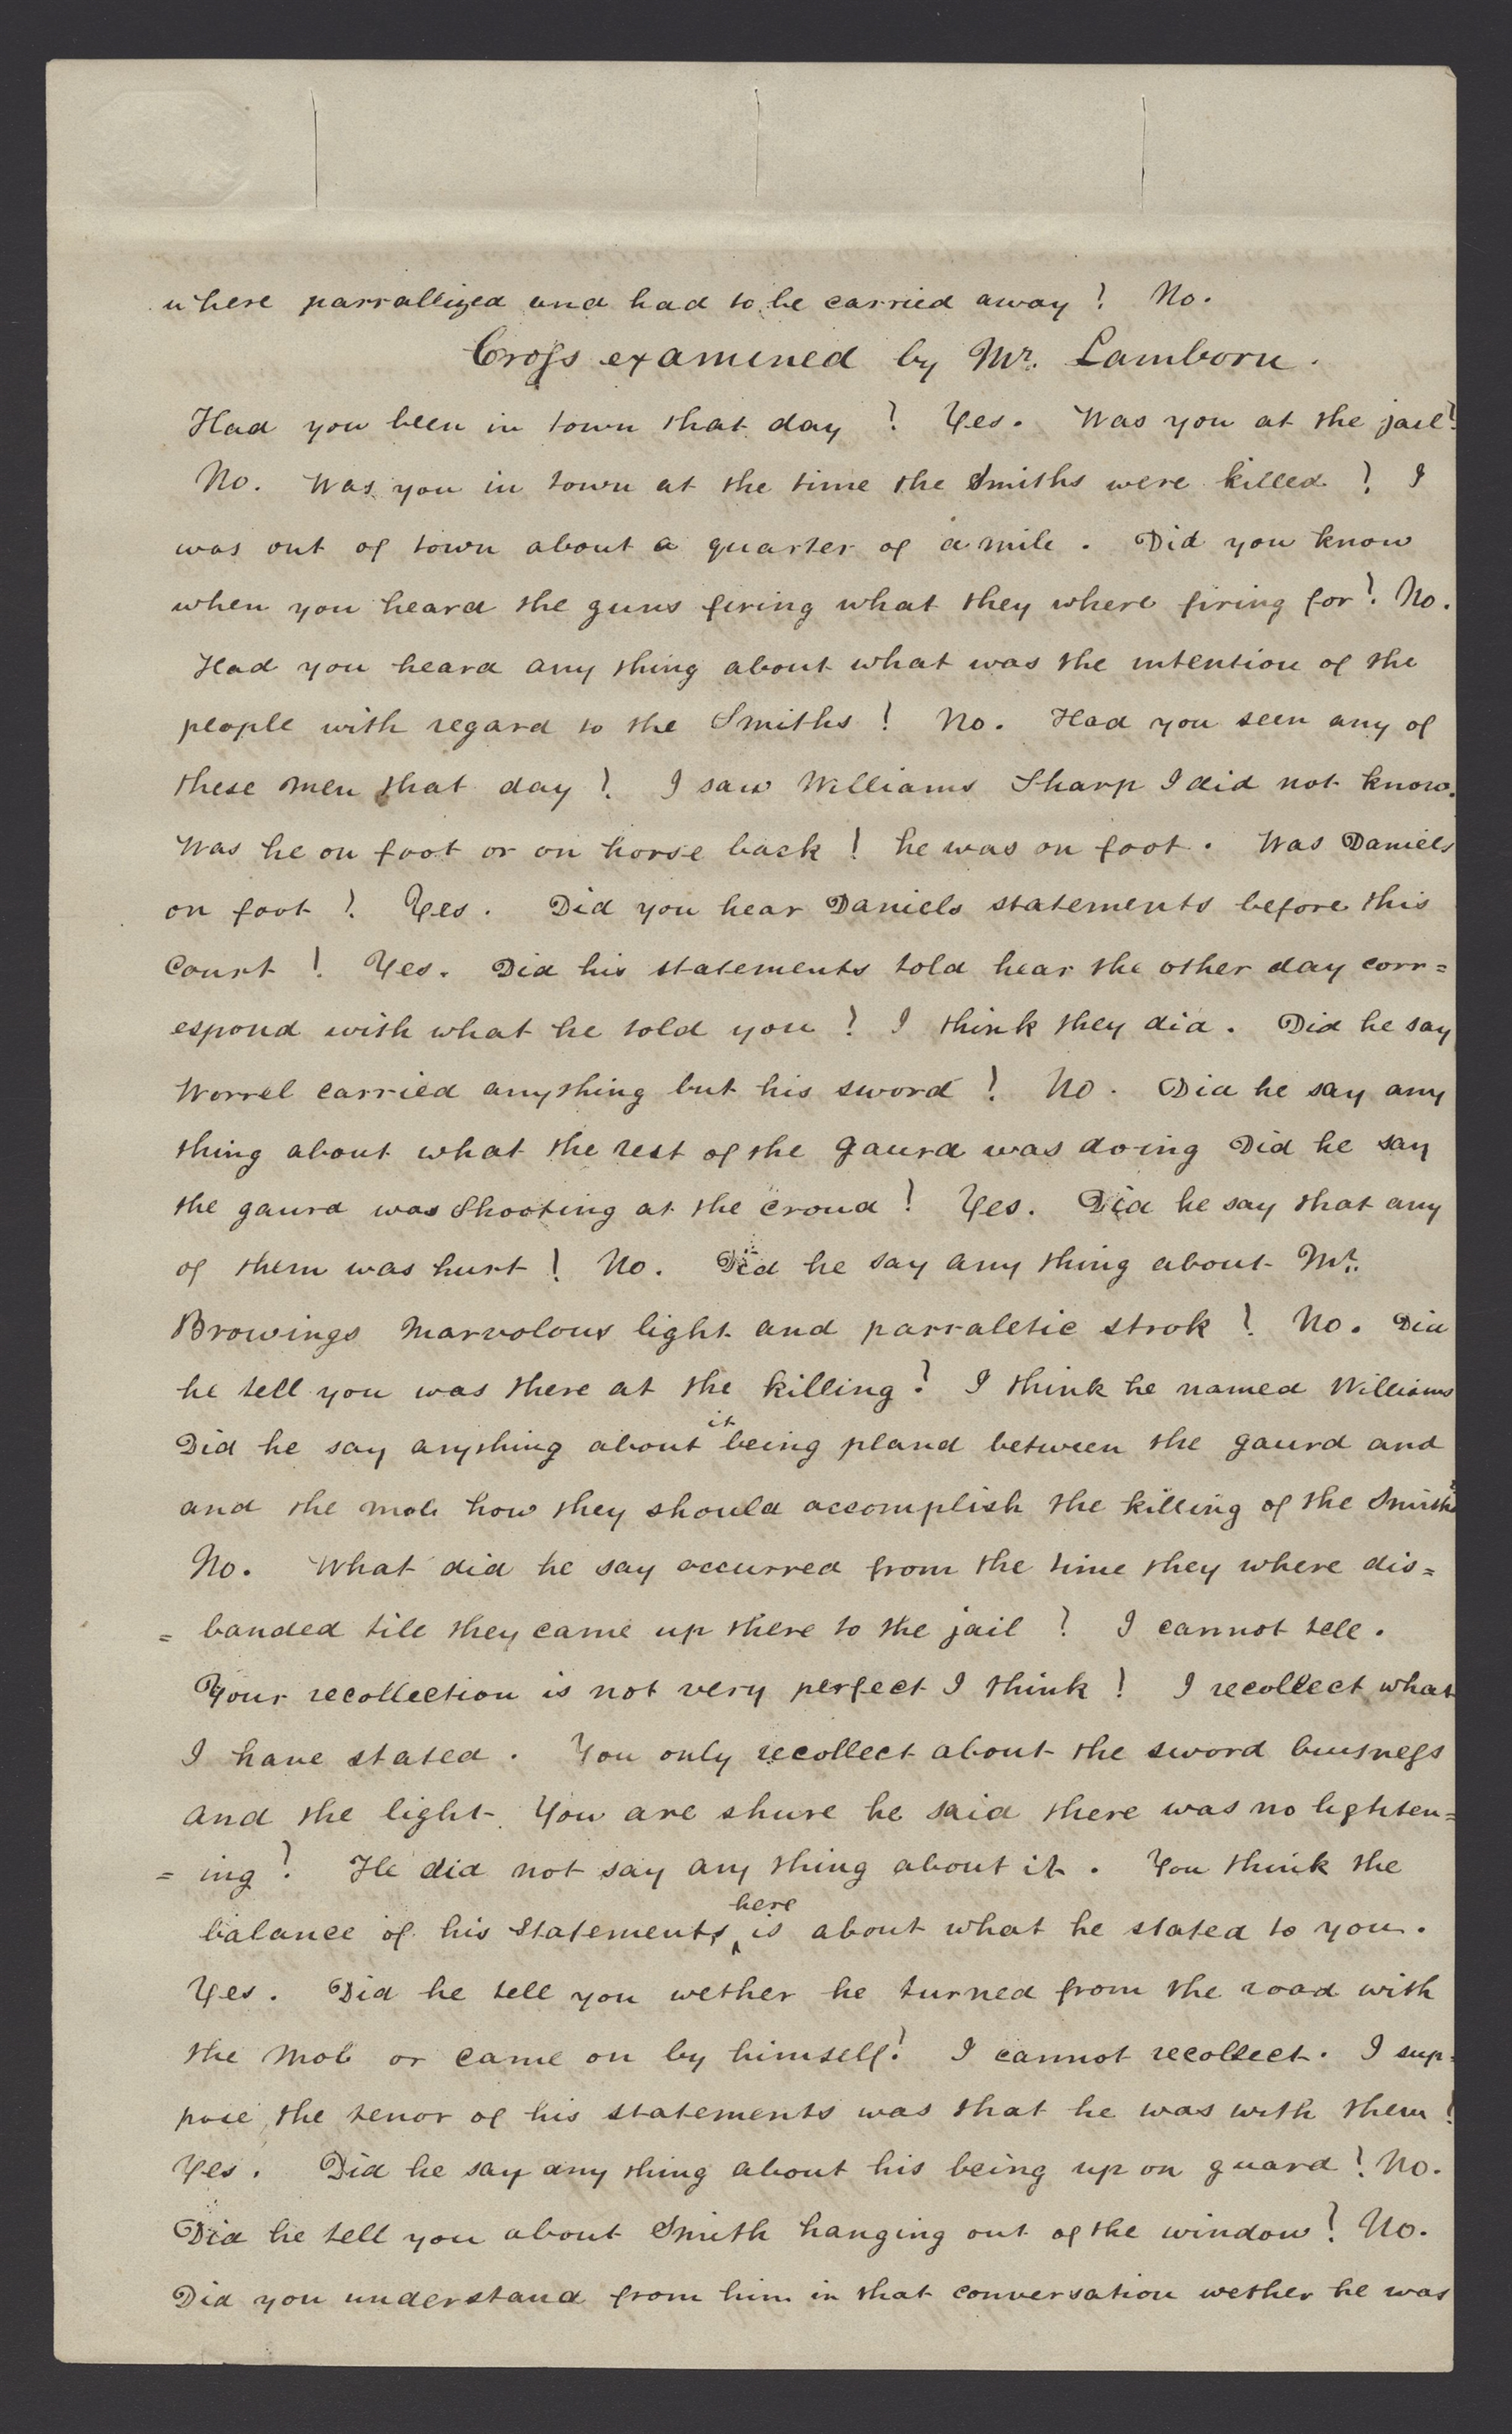 where parrallized and had to be carried away? No.
Cross examined by Mr. Lamborn.
Had you been in town that day? Yes. Was you at the jail?
No. Was you in town at the time the Smiths were killed? I
was out of town about a quarter of a mile. Did you know
when you heard the guns firing what they where firing for? No.
Had you heard any thing about what was the intention of the
people with regard to the Smiths? No. Had you seen any of
these men that day? I saw Williams Sharp I did not know.
Was he on foot or on horse back? he was on foot. Was Daniels
on foot? Yes. Did you hear Daniels statements before this
Court? Yes. Did his statements told hear the other day corr=
espond with what he told you? I think they did. Did he say
Worrel carried anything but his sword? No. Did he say any
thing about what the rest of the gaurd was doing Did he say
the gaurd was Shooting at the croud? Yes. Did he say that any
of them was hurt? No. Did he say any thing about Mr.
Browings marvolous light and parraletic strok? No. Did
he tell you was there at the killing? I think he named Williams
Did he say anything about it being pland between the gaurd and
and the mob how they should accomplish the killing of the Smiths
No. What did he say occurred from the time they where dis=
= banded till they came up there to the jail? I cannot tell.
Your recollection is not very perfect I think? I recollect what
I have stated. You only recollect about the sword buisness
and the light. You are shure he said there was no lighten=
= ing? He did not say any thing about it. You think the
balance of his statements here is about what he stated to you.
Yes. Did he tell you wether he turned from the road with
the mob or came on by himself? I cannot recollect. I sup=
pose the tenor of his statements was that he was with them?
Yes. Did he say any thing about his being up on guard? No.
Did he tell you about Smith hanging out of the window? No.
Did you understand from him in that conversation wether he was